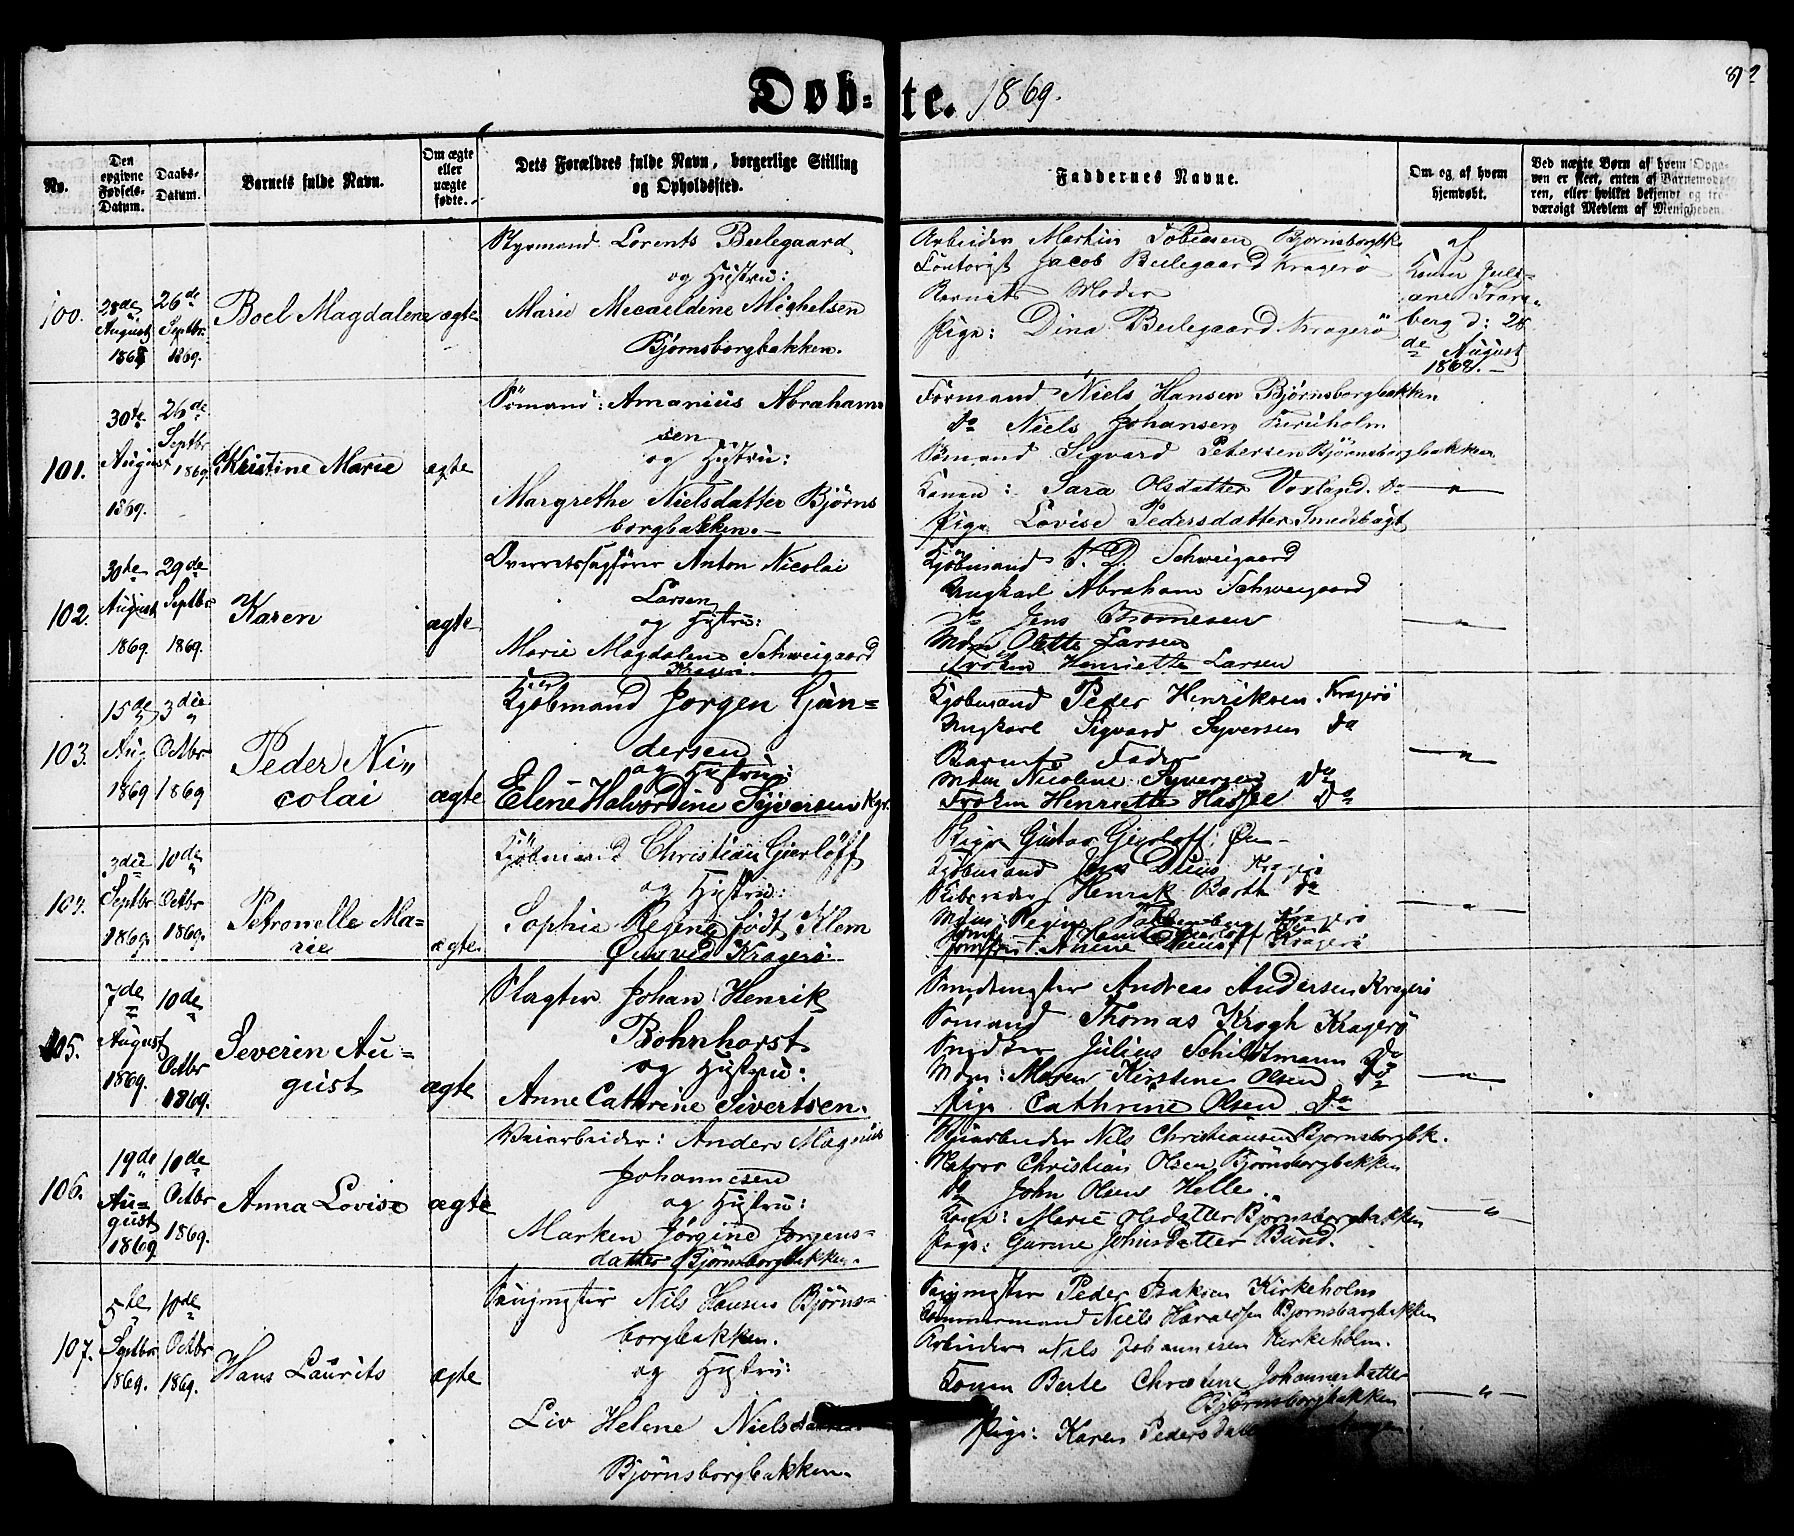 Døb-te. 1869.
No.
Den opgivne Fødsels-Datum.
Daabs-Datum.
Barnets fulde Navn.
Om ægte eller uægte fødte.
Dets Forældres fulde Navn, borgerlige Stilling og Opholdssted.
Faddernes Navne.
Om og af hvem hjemdøbt.
Ved uægte Børn af hvem Opga-
ven er skeet, enten af Barnemode-
ren, eller hvilket bekjendt og tro-
værdigt Medlem af Menigheden.
100.
28de August
26de Septbr. 1869.
Boel Magdalene
ægte
Styrmand Lorents Beilegaard
og Hustru:
Marie Micaeldine Michelsen
Bjørnsborgbakken.
Arbeider Martin Tobiesen Bjørnsborgbk
Contorist Jacob Beilegaard Kragerø
Barnets Moder
Pige: Dina Beilegaard Kragerø
af
Konen Juli-
ane
berg d: 28
de August
101.
30te August 1869.
26de Septbr 1869
Kristine Marie
ægte
Sømand: Amanius Abraham-
sen
og Hustru:
Margrethe Nielsdatter Bjørns
borgbakken.
Formand Niels Hansen Bjørnsborgbakken
do Niels Johansen Furuholm
Sømand Sigvard Petersen Bjørnsborgbakken
Konen: Sara Olsdatter Voxland. do
Pige Lovise Pedersdatter Smedsbugt
102.
30te August 1869.
29de Septbr 1869.
Karen
ægte
Overretssagfører Anton Nicolai
Larsen
og Hustru:
Marie Magdalene Schweigaard
Kragerø.
Kjøbmand P. D. Schweigaard
Ungkarl Abraham Schweigaard
do Jens Thomesen
Mdm Olette Larsen
Frøken Henriette Larsen
103.
15de Aug 1869
3die Octbr 1869
Peder Ni-
colai
ægte
Kjøbmand Jørgen Gun-
dersen
og Hustru:
Elene Halvordine Syversen Kgr.
Kjøbmand Peder Henriksen. Kragerø
Ungkarl Sigvard Syversen do
Barnets Fader
Mdm Nicoline Syversen Do
Frøken Henriette Hassel Do
104.
3die Septbr 1869.
10de Octbr 1869.
Petronelle Ma-
rie
ægte
Kjøbmand Christian Gierløff
og Hustru:
Sophie Regine født Klem
Øen ved Kragerø.
Gustav Gierløff, Øen
Kjøbmand Jens Kragerø
Henrik Barth do
Mdm: Regine Kragerø
105.
7de August 1869.
10de Octbr 1869.
Severin Au-
gust
ægte
Slagter Johan Henrik
Bohnhorst
og Hustru:
Anne Cathrine Sivertsen.
Smedmester Andreas Andersen Kragerø
Sømand Thomas Krogh Kragerø
Snedker Julius Schildtmann Do
Mdm: Maren Kirstine Olsen Do
Pige Cathrine Olsen Do
106.
19de August 1869
10de Octbr 1869.
Anna Lovise
ægte
Veiarbeider: Anders Magnus
Johannesen
og Hustru:
Marken Jørgine Jørgens-
datter Bjørnsborgbakken.
Veiarbeider Nils Christiansen Bjørnsborgbk.
Matros Christian Olsen Bjørnsborgbakken
do John Olsen Helle.
Kone: Marie Olsdatter Bjørnsborgbakken
Pige: Gurine Johnsdatter Bund.
107.
5te Septbr 1869.
10de Octbr 1869.
Hans Laurits
ægte
Nils Hansen Bjørns-
borgbakken.
og Hustru:
Liv Helene Nielsdatter
Bjørnsborgbakken.
Peder Isaksen Kirkeholm
Tømmermand Niels Haraldsen Bjørnsborgbakken
Arbeider Nils Johannesen Kirkeholm.
Konen Berte Christine Johannesdatter
Bjørnsborgbakken
Pige: Karen Pedersdatter